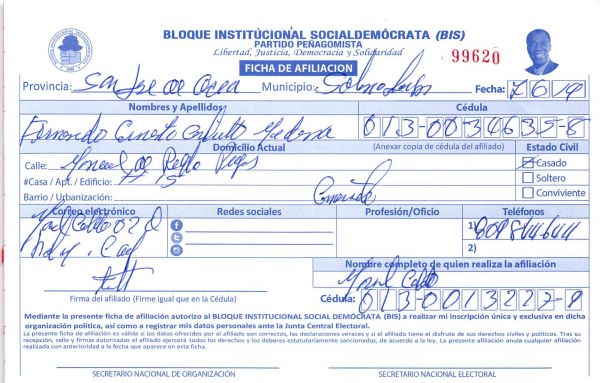 BLOQUE INSTITUCIONAL SOCIALDEMÓCRATA (BIS)
PARTIDO PEÑAGOMISTA
Libertad, Justicia, Democracia y Solidaridad
99620
FICHA DE AFILIACION
Provincia: San Jose de Ocoa Municipio: Fecha: 7 6 19
Nombres y Apellidos Cédula
Fernando 013-0034635-8
Domicilio Actual (Anexar copia de cédula del afiliado) Estado Civil
Calle: Manuel de Regla Casado
#Casa / Apt. / Edificio: 15 Soltero
Barrio / Urbanización: Conviviente
Correo electrónico Redes sociales Profesión/Oficio Teléfonos
1)
2)
Nombre completo de quien realiza la afiliación
Firma del afiliado (Firme igual que en la Cédula) Cédula: 013-0013227-8
Mediante la presente ficha de afiliación autorizo al BLOQUE INSTITUCIONAL SOCIAL DEMÓCRATA (BIS) a realizar mi inscripción única y exclusiva en dicha
organización política, así como a registrar mis datos personales ante la Junta Central Electoral.
La presente ficha de afiliación es válida si los datos ofrecidos por el afiliado son correctos, las declaraciones veraces y si el afiliado tiene el disfrute de sus derechos civiles y políticos. Tras su
recepción, sello y firmas autorizadas el afiliado ejercerá todos los derechos y los deberes estatutariamente sancionados, de acuerdo a la ley. La presente afiliación anula cualquier afiliación
realizada con anterioridad a la fecha que aparece en esta ficha.
SECRETARIO NACIONAL DE ORGANIZACIÓN SECRETARIO NACIONAL ELECTORAL